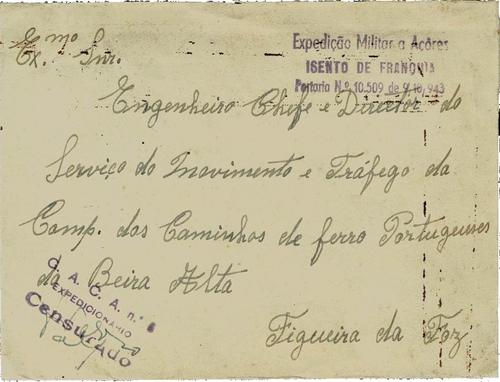 Ex.mo Snr.
Expedição Militar a Açôres
ISENTO DE FRANQUIA
Portaria N.º 10.509 de 9/10/943
Engenheiro Chefe e Director do
Serviço do Movimento e Tráfego da
Comp. dos Caminhos de ferro Portugueses
da Beira Alta
Figueira da Foz
G. A. C. A. n.º
EXPEDICIONARIO
Censurado